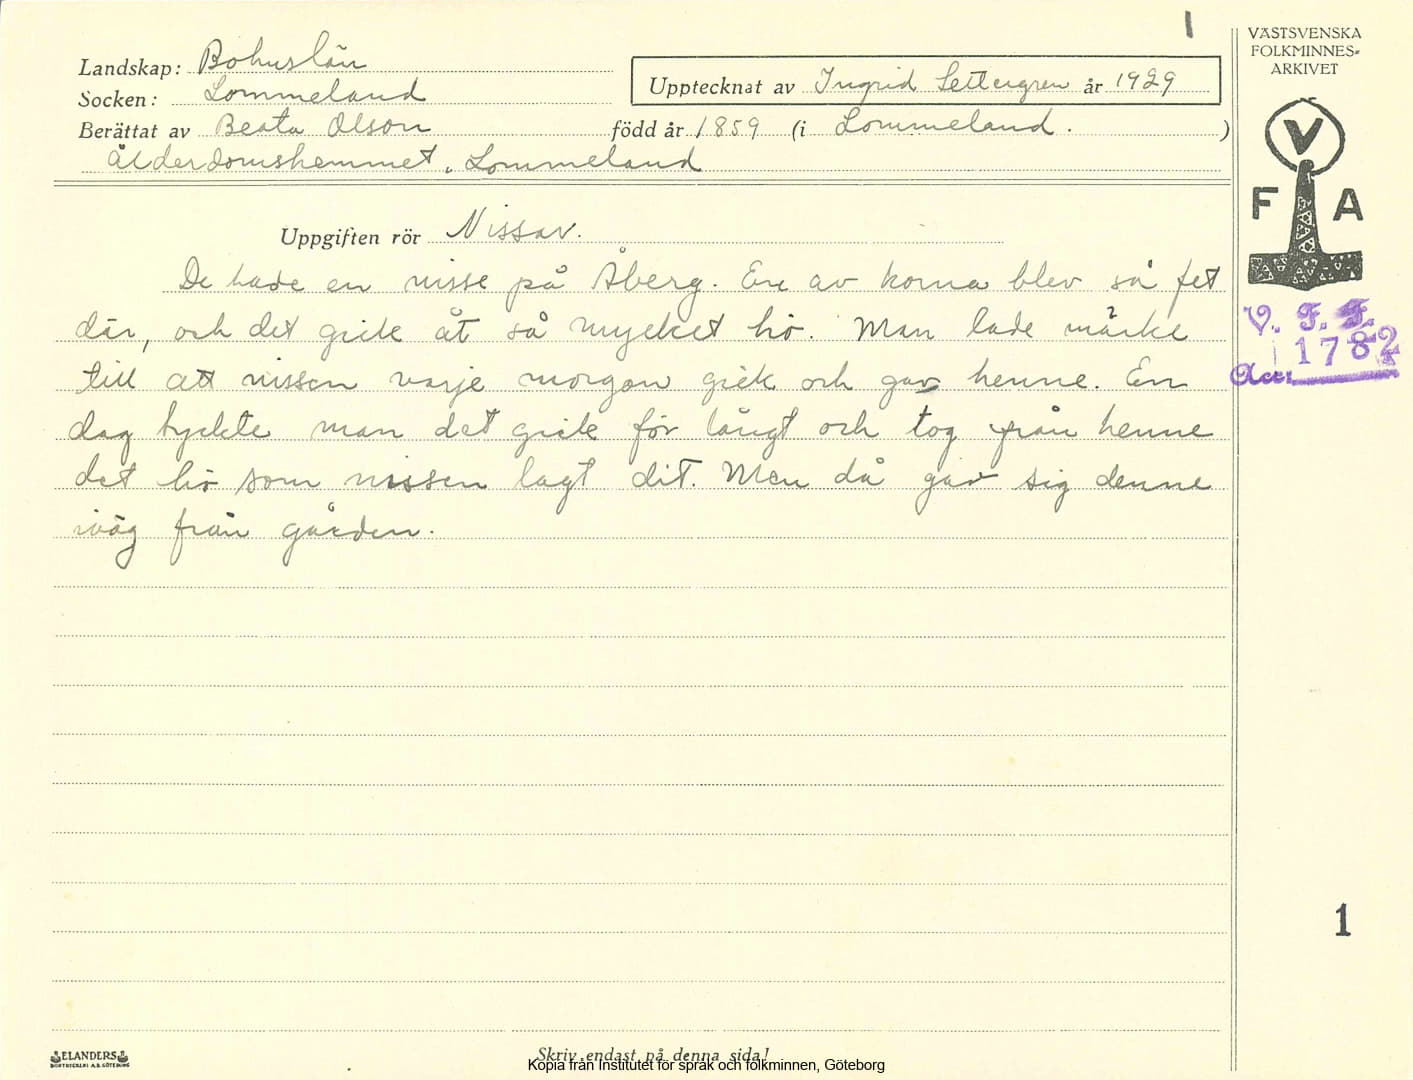 1
VÄSTSVENSKA
FOLKMINNES=
ARKIVET
Landskap: Bohuslän
Upptecknat av Ingrid Settergren år 1929
Socken: Lommeland
Berättat av Beata Olson född år 1859 (i Lommeland. )
Ålderdomshemmet, Lommeland
V
F A
Uppgiften rör Nissar.
De hade en nisse på Åberg. En av korna blev så fet
där, och det gick åt så mycket hö. Man lade märke
till att nissen varje morgon gick och gav henne. En
dag tyckte man det gick för långt och tog från henne
det hö som nissen lagt dit. Men då gav sig denne
iväg från gården.
V. F. F.
1782
Acc.
1
ELANDERS
BOKTRYCKERI A.B. GÖTEBORG
Skriv endast på denna sida!
Kopia från Institutet för språk och folkminnen, Göteborg